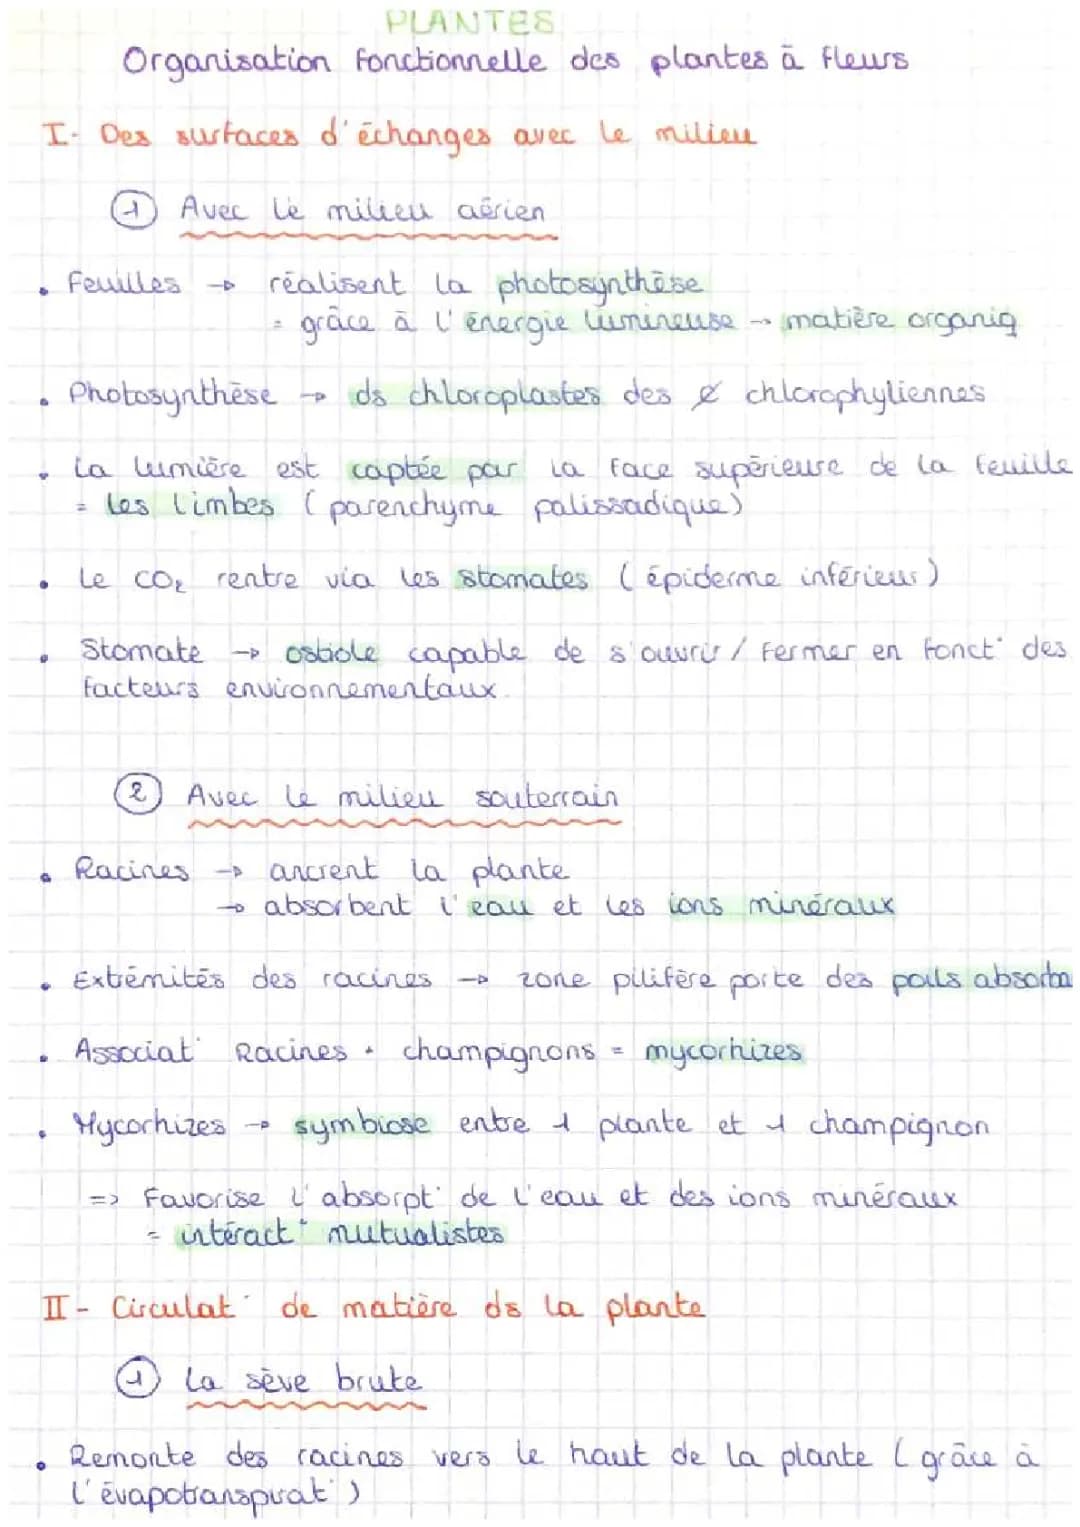 PLANTES
Organisation fonctionnelle des plantes à fleurs
I- Des surfaces d'échanges avec le milieu
1 Avec le milieu aérien
• Feuilles → réalisent la photosynthèse
= grâce à l'énergie lumineuse → matière organiq
• Photosynthèse → ds chloroplastes des ȼ chlorophyliennes
• La lumière est captée par la face supérieure de la feuille
= les limbes (parenchyme palissadique)
• Le CO₂ rentre via les stomates (épiderme inférieur)
• Stomate → ostiole capable de s'ouvrir / fermer en fonct° des
facteurs environnementaux.
2 Avec le milieu souterrain
• Racines → ancrent la plante
→ absorbent l'eau et les ions minéraux
• Extrémités des racines → zone pilifère porte des poils absorba
• Associat° Racines + champignons = mycorhizes
• Mycorhizes → symbiose entre 1 plante et 1 champignon
=> Favorise l'absorpt° de l'eau et des ions minéraux
= intéract° mutualistes
II- Circulat° de matière ds la plante
1 La sève brute
• Remonte des racines vers le haut de la plante (grâce à
l'évapotranspirat°)